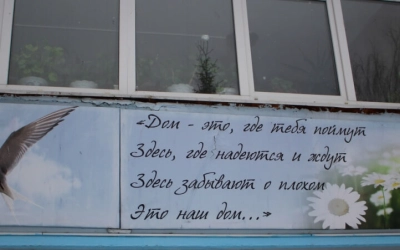 «Дом - это, где тебя поймут
Здесь, где надеются и ждут
Здесь забывают о плохом
Это наш дом...»